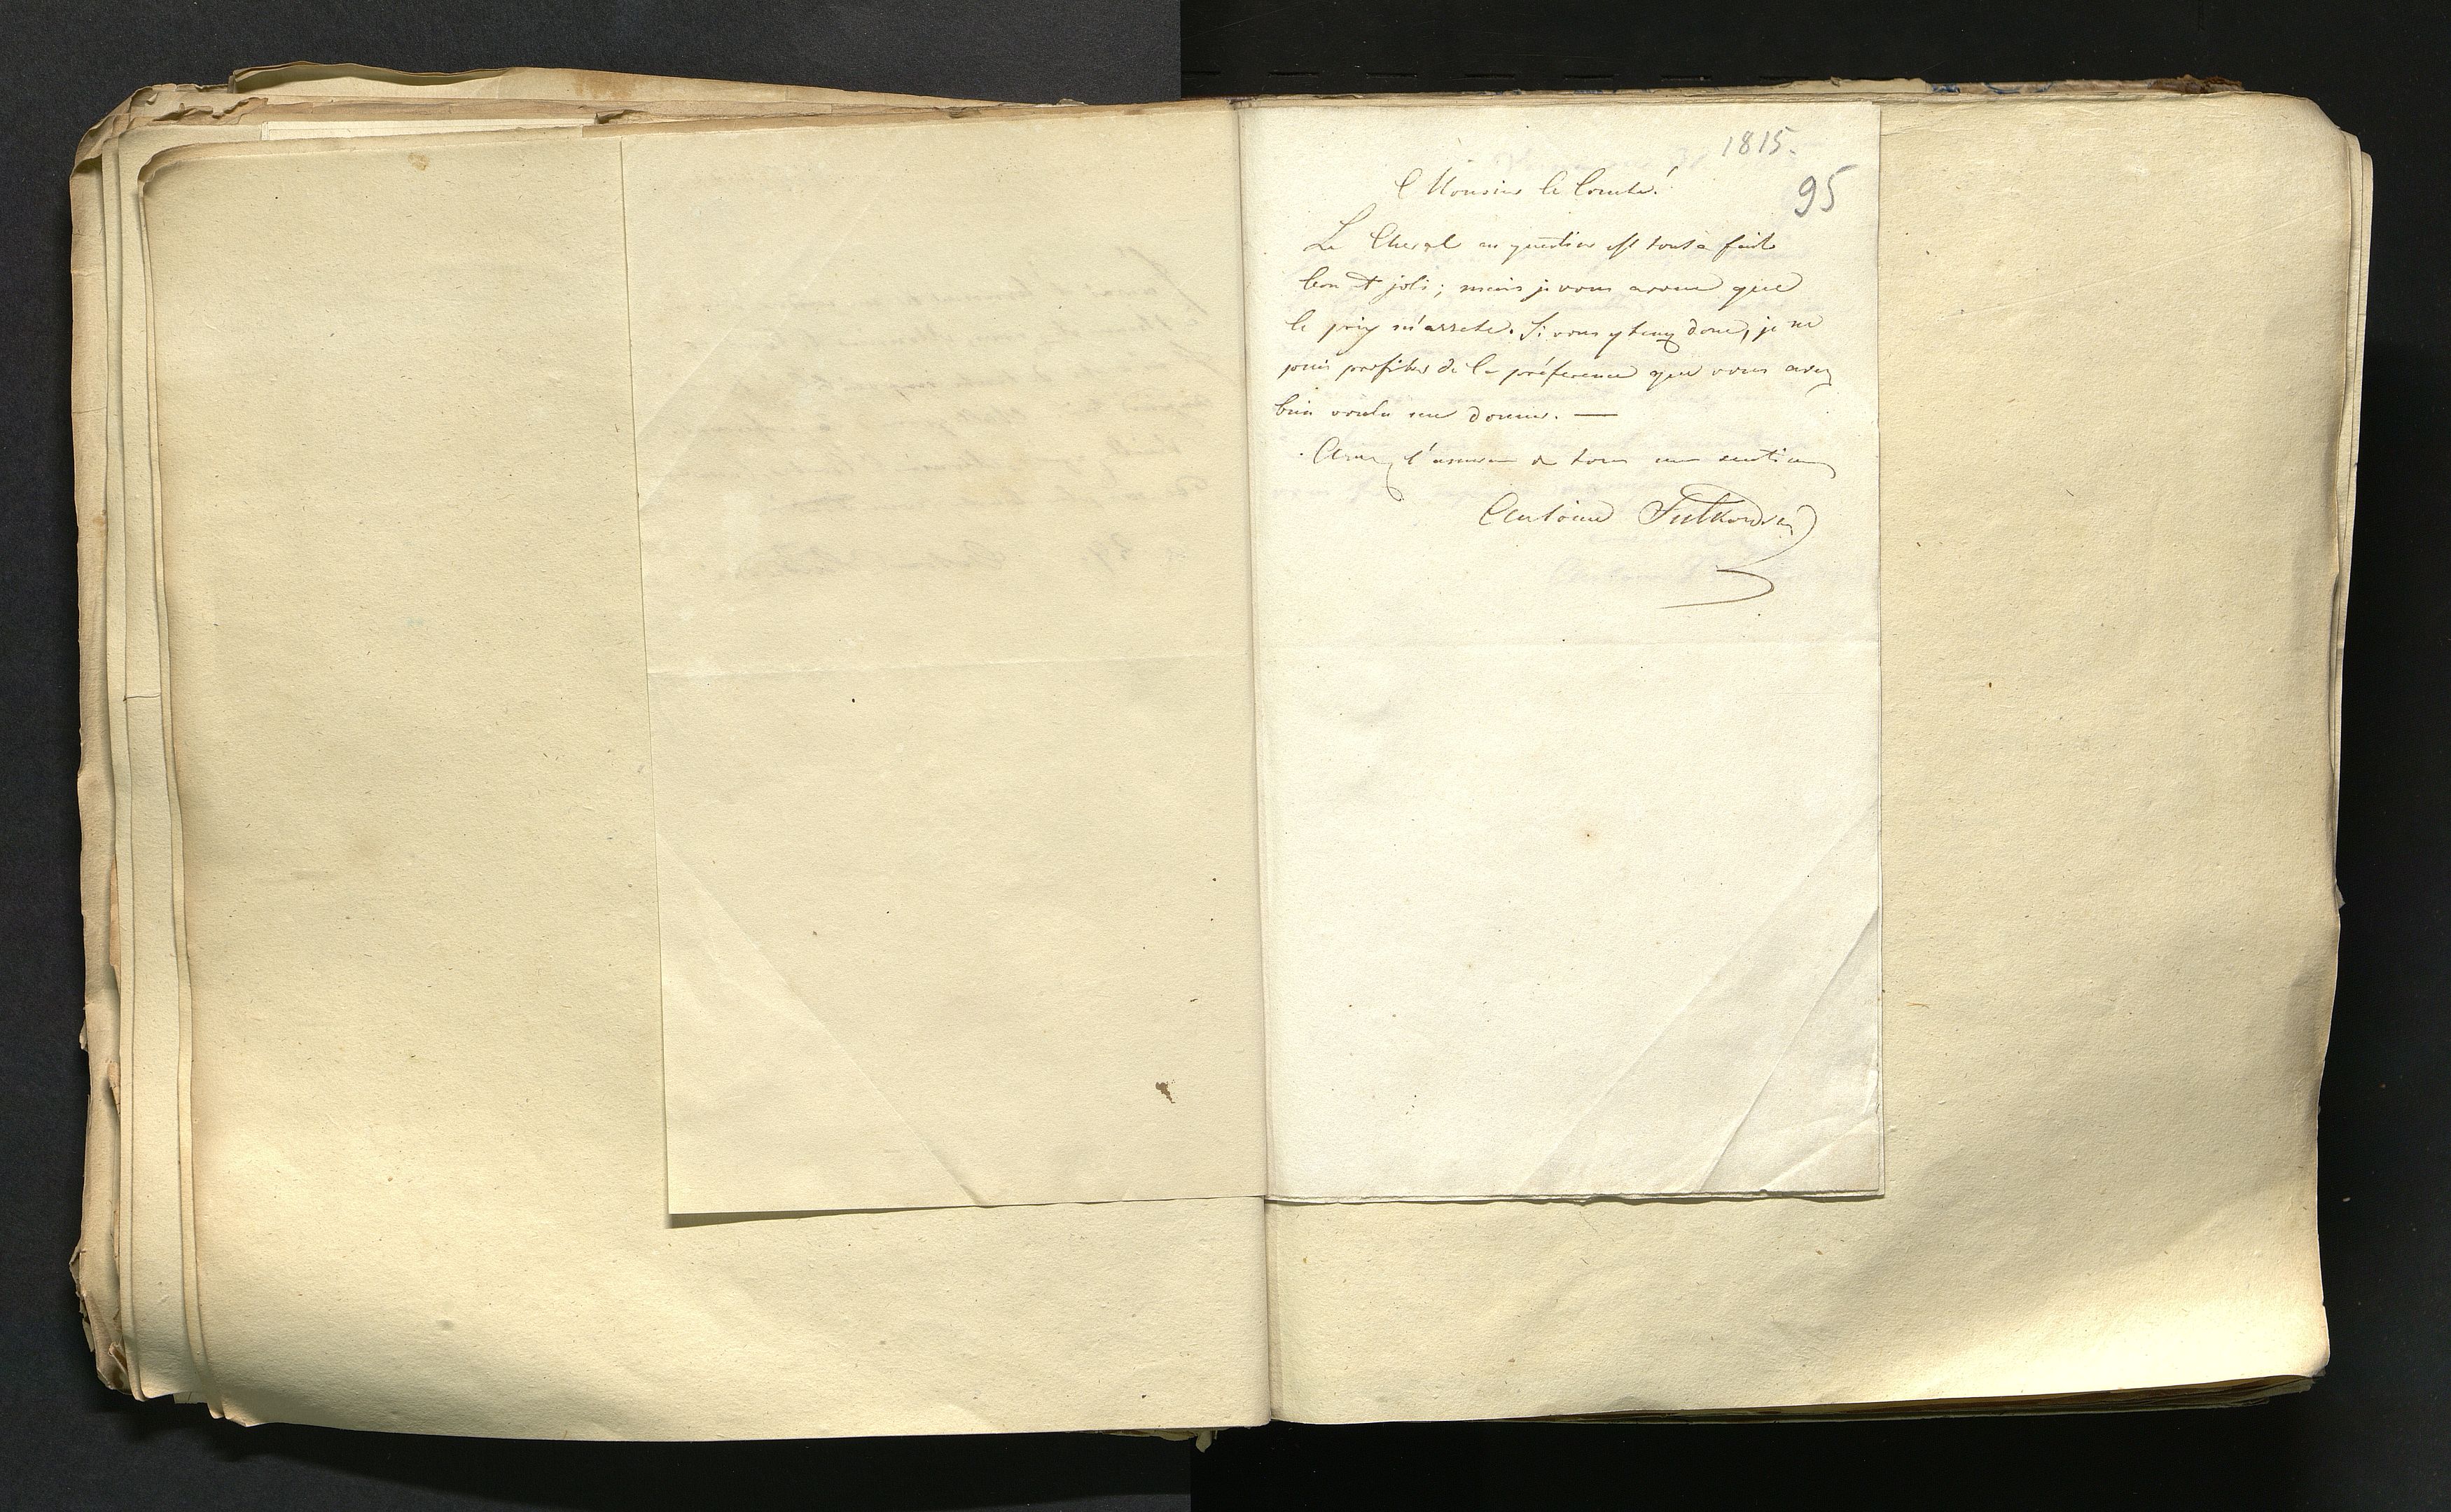 1815.
95
Monsieur le Comte!
Le Cheval en question est tout à fait
bon et joli; mais je vous avoue que
le prix m'arrete. Si vous y tenez donc, je ne
puis profiter de la préference que vous avez
bien voulu me donner. —
Agréez l'assurance de tous mes sentimens
Antoine Sulkowski